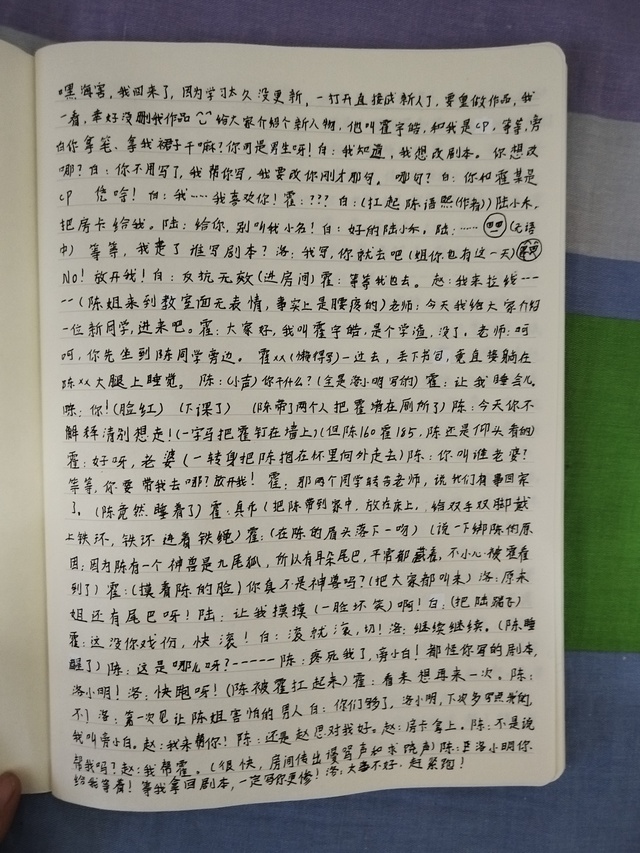 嘿海害,我回来了,因为学习太久没更新,一打开直接成新人了,要重做作品,我
一看,幸好没删我作品 给大家介绍个新人物,他叫霍宇皓,和我是cp,等等,旁
白你拿笔、拿我裙子干嘛?你可是男生呀!白:我知道,我想改剧本。你想改
哪?白:你不用写了,我帮你写,我要改你刚才那句。哪句?白:你和霍某是
cp 怪哈!白:我……我喜欢你!霍:???白:(扛起陈语熙(作者))陆小禾,
把房卡给我。陆:给你,别叫我小名!白:好的陆小禾,陆:……(无语
中) 等等,我走了谁写剧本?洛:我写,你就去吧(姐你也有这一天)
NO!放开我!白:反抗无效(进房间)霍:等等我也去。赵:我来拉线----
----(陈姐来到教室面无表情,事实上是腰疼的)老师:今天我给大家介绍
一位新同学,进来吧。霍:大家好,我叫霍宇皓,是个学渣,没了。老师:呵
呵,你先坐到陈同学旁边。霍xx(懒得写)一过去,丢下书包,竟直接躺在
陈xx大腿上睡觉。陈:(小声)你干什么?(全是洛小明写的)霍:让我睡会儿。
陈:你!(脸红)(下课了)(陈带了两个人把霍堵在厕所了)陈:今天你不
解释清别想走!(一字马把霍钉在墙上)(但陈160霍185,陈还是仰头看的)
霍:好呀,老婆(一转身把陈抱在怀里向外走去)陈:你叫谁老婆?
等等,你要带我去哪?放开我!霍:那两个同学转告老师,说我们有事回家
了。(陈竟然睡着了)霍:真乖(把陈带到家中,放在床上,给双手双脚戴
上铁环,铁环连着铁绳)霍:(在陈的眉头落下一吻)(说一下绑陈的原
因:因为陈有一个神兽是九尾狐,所以有耳朵尾巴,平常都藏着,不小心被霍看
到了)霍:(摸着陈的脸)你真不是神兽吗?(把大家都叫来)洛:原来
姐还有尾巴呀!陆:让我摸摸(一脸坏笑)啊!白:(把陆踹飞)
霍:这没你戏份,快滚!白:滚就滚,切!洛:继续继续。(陈睡
醒了)陈:这是哪儿呀?------陈:疼死我了,旁小白!都怪你写的剧本,
洛小明!洛:快跑呀!(陈被霍扛起来)霍:看来想再来一次。陈:
不!洛:第一次见让陈姐害怕的男人白:你们够了,洛小明,下次多写点我的,
我叫旁小白。赵:我来帮你!陈:还是赵思对我好。赵:房卡拿上。陈:不是说
帮我吗?赵:我帮霍。(很快,房间传出谩骂声和求饶声)陈:洛小明你
给我等着!等我拿回剧本,一定写你更惨!洛:大事不好,赶紧跑!